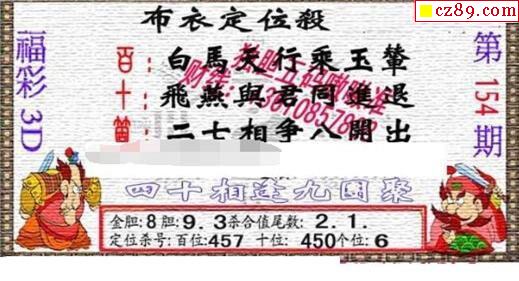 cz89.com
布衣定位殺
福彩3D
第154期
百：白馬天行乘玉輦
十：飛燕與君同進退
個：二七相爭八開出
四十相逢九團聚
金胆:8胆:9.3杀合值尾数:2.1.
定位杀号:百位:457 十位:450个位:6